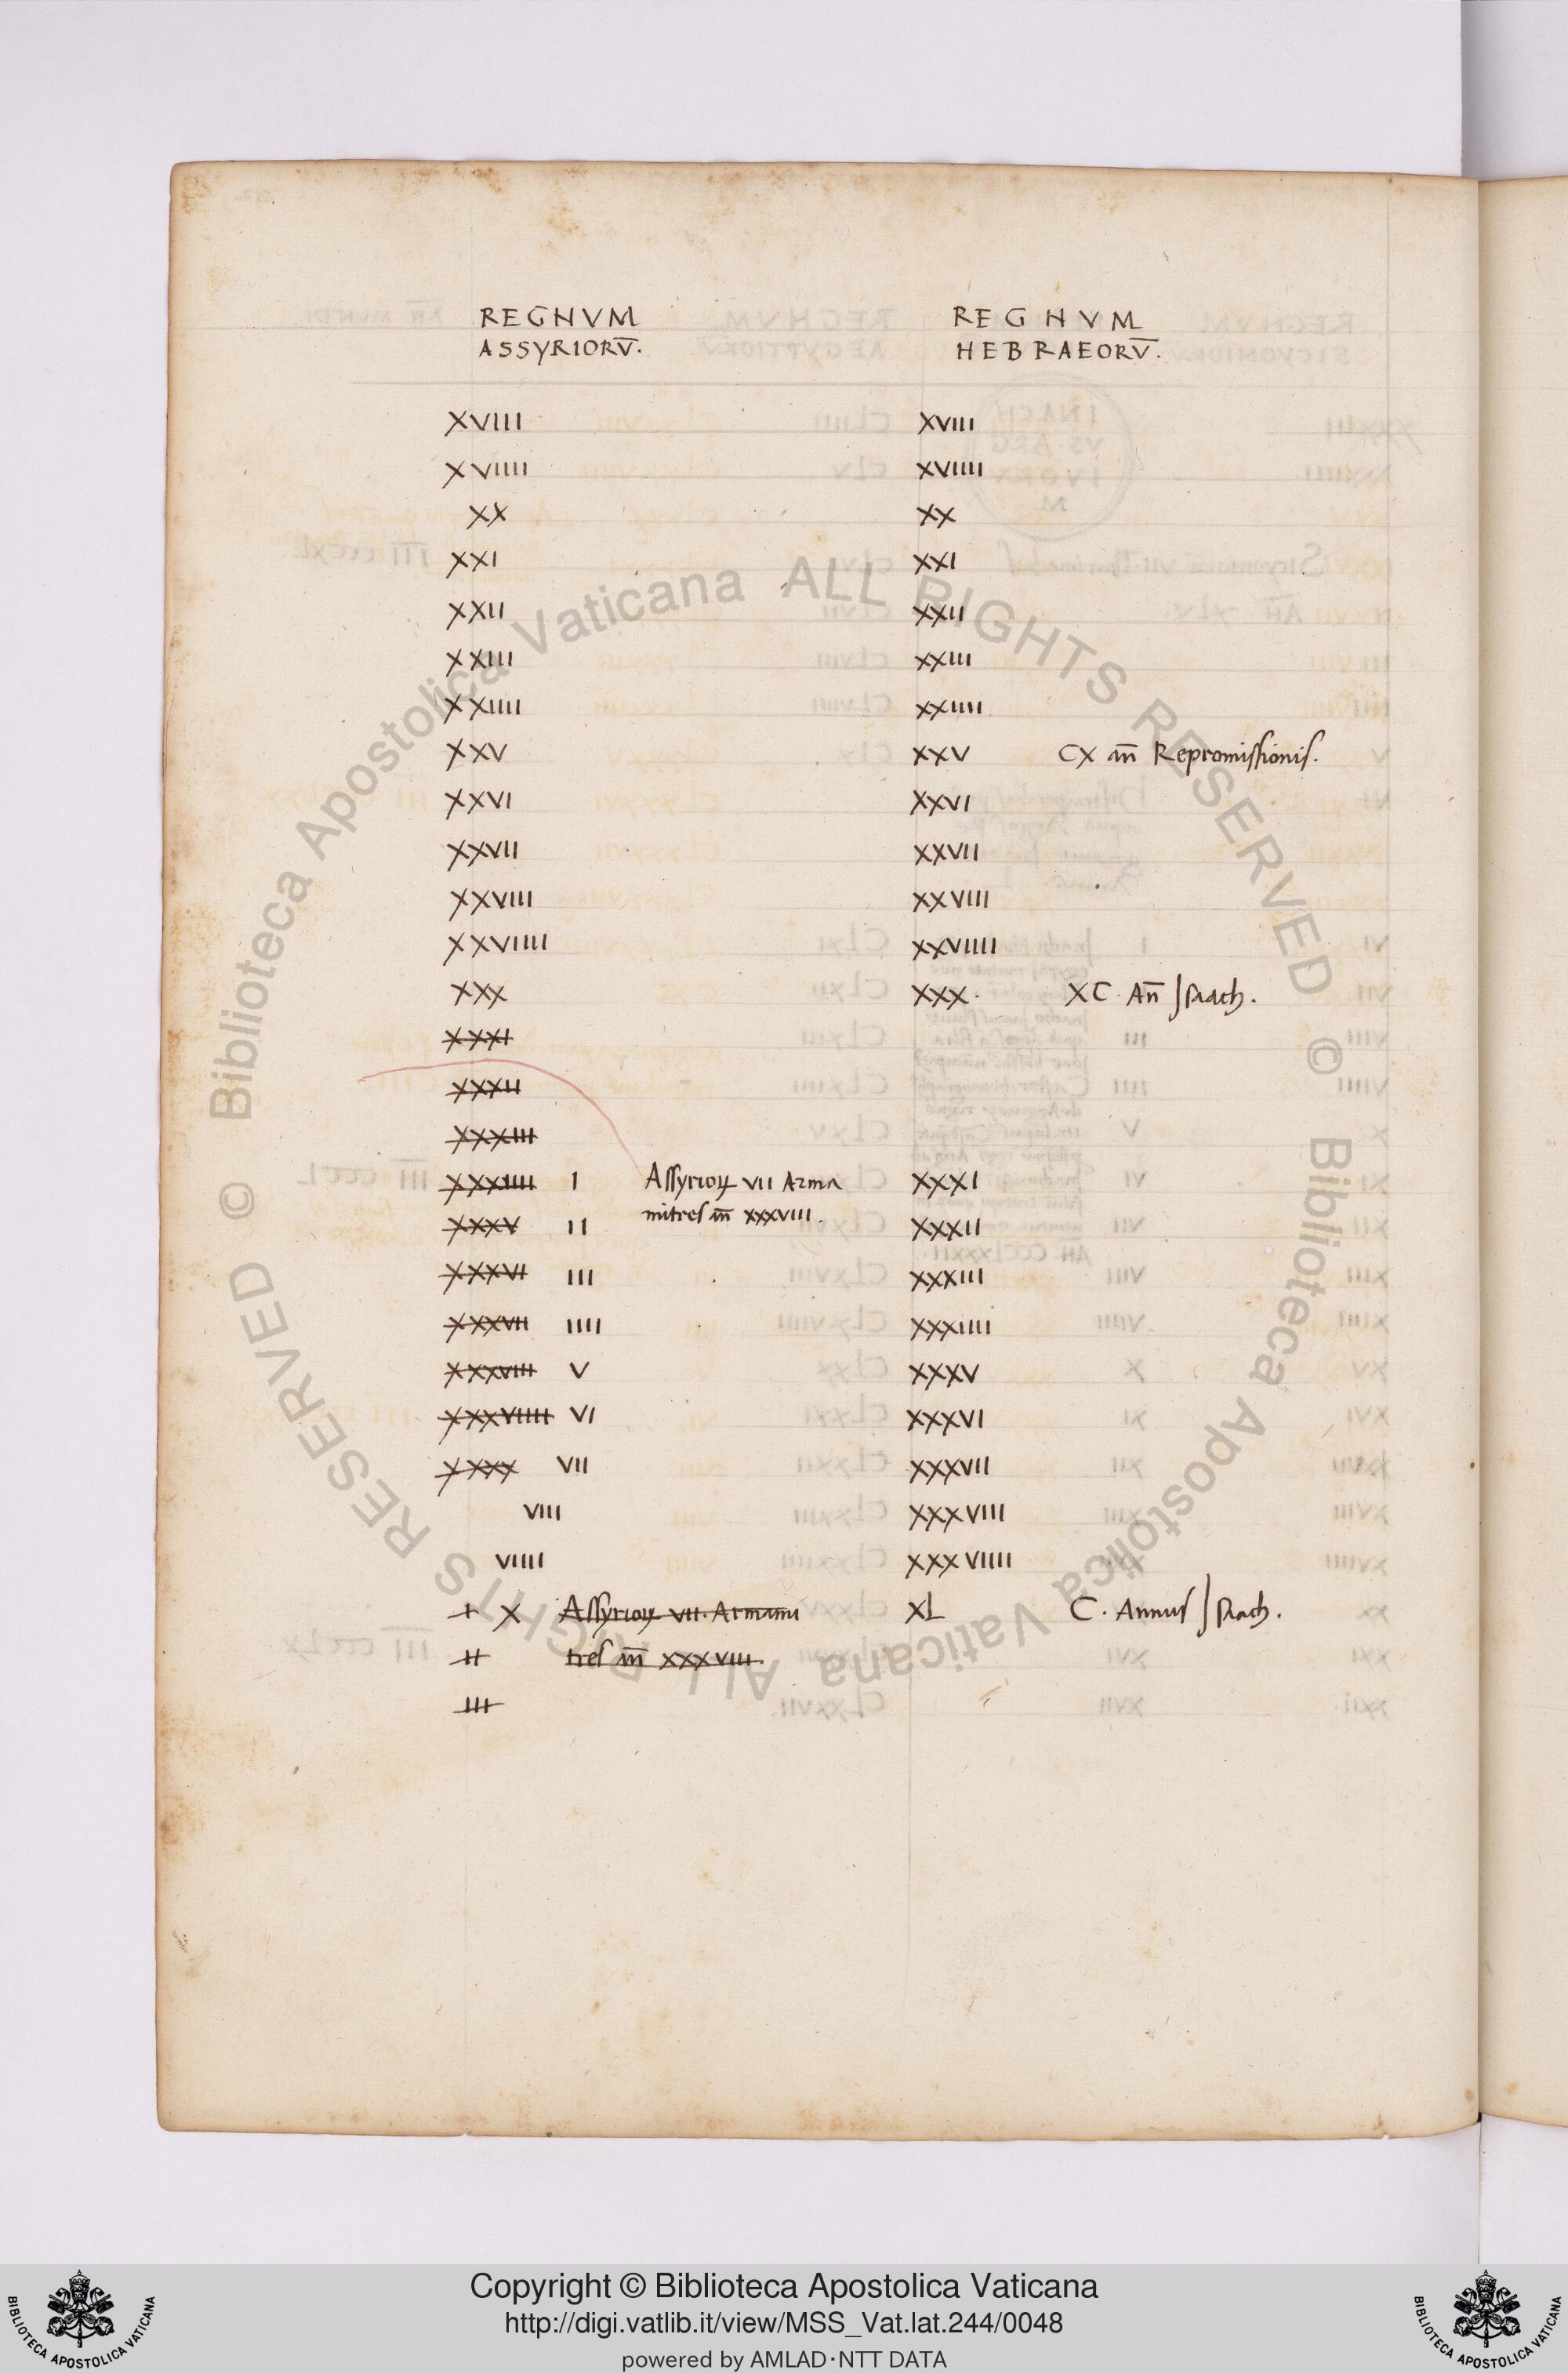 REGNVM REGNVM
ASSYRIORV̅. HEBRAEORV̅.
XVIII XVIII
XVIIII XVIIII
XX XX
XXI XXI
XXII XXII
XXIII XXIII
XXIIII XXIIII
XXV XXV CX an̅ Repromissionis.
XXVI XXVI
XXVII XXVII
XXVIII XXVIII
XXVIIII XXVIIII
XXX XXX. XC. An̅ Isaach.
XXXI
XXXII
XXXIII
XXXIIII I Assyrioꝝ VII Arma XXXI
XXXV II mitres an̅ XXXVIII. XXXII
XXXVI III XXXIII
XXXVII IIII XXXIIII
XXXVIII V XXXV
XXXVIIII VI XXXVI
XXXX VII XXXVII
VIII XXXVIII
VIIII XXXVIIII
I X Assyrioꝝ VII. Armami XL C. Annus Isaach.
II tres an̅ XXXVIII
III
© Biblioteca Apostolica Vaticana ALL RIGHTS RESERVED © Biblioteca Apostolica Vaticana ALL RIGHTS RESERVED
Copyright © Biblioteca Apostolica Vaticana
http://digi.vatlib.it/view/MSS_Vat.lat.244/0048
powered by AMLAD·NTT DATA
BIBLIOTECA APOSTOLICA VATICANA
BIBLIOTECA APOSTOLICA VATICANA